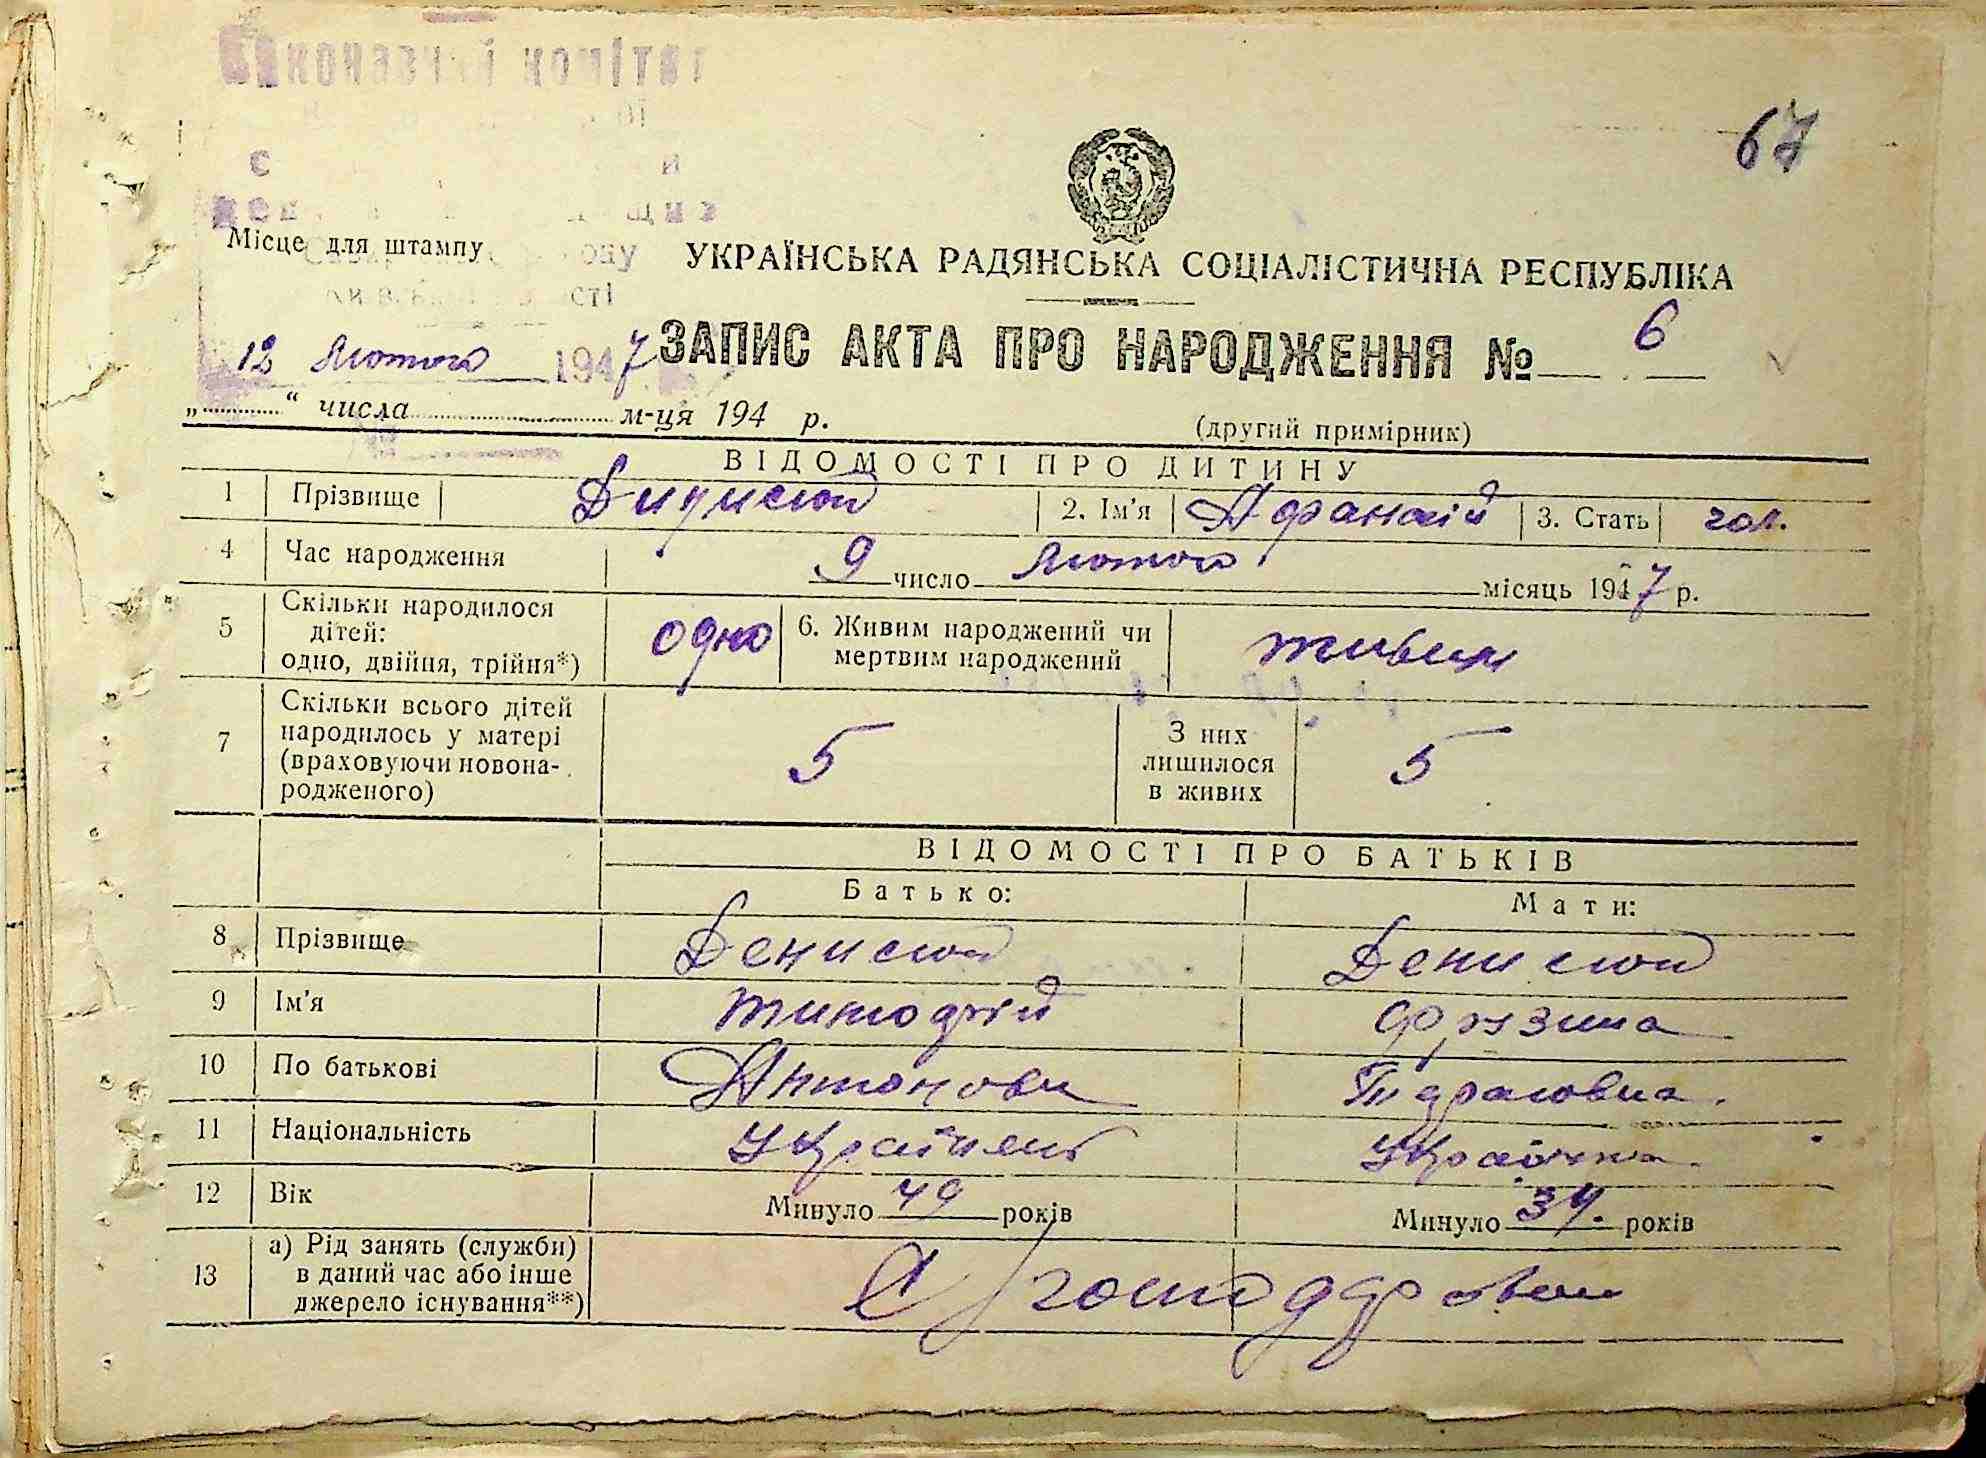 Виконавчий комітет
67
Місце для штампу
УКРАЇНСЬКА РАДЯНСЬКА СОЦІАЛІСТИЧНА РЕСПУБЛІКА
12 Лютого 1947
ЗАПИС АКТА ПРО НАРОДЖЕННЯ № 6
„ “ числа м-ця 194 р.
(другий примірник)
ВІДОМОСТІ ПРО ДИТИНУ
1 Прізвище 2. Ім'я Афанасій 3. Стать чол.
4 Час народження 9 число Лютого місяць 1947 р.
5 Скільки народилося дітей: одно, двійня, трійня*) одно 6. Живим народжений чи мертвим народжений живим
7 Скільки всього дітей народилось у матері (враховуючи новонародженого) 5 З них лишилося в живих 5
ВІДОМОСТІ ПРО БАТЬКІВ
Батько: Мати:
8 Прізвище Денисюк Денисюк
9 Ім'я Тимофій Фрузина
10 По батькові
11 Національність Українець Українка
12 Вік Минуло 49 років Минуло 34. років
13 а) Рід занять (служби) в даний час або інше джерело існування**)